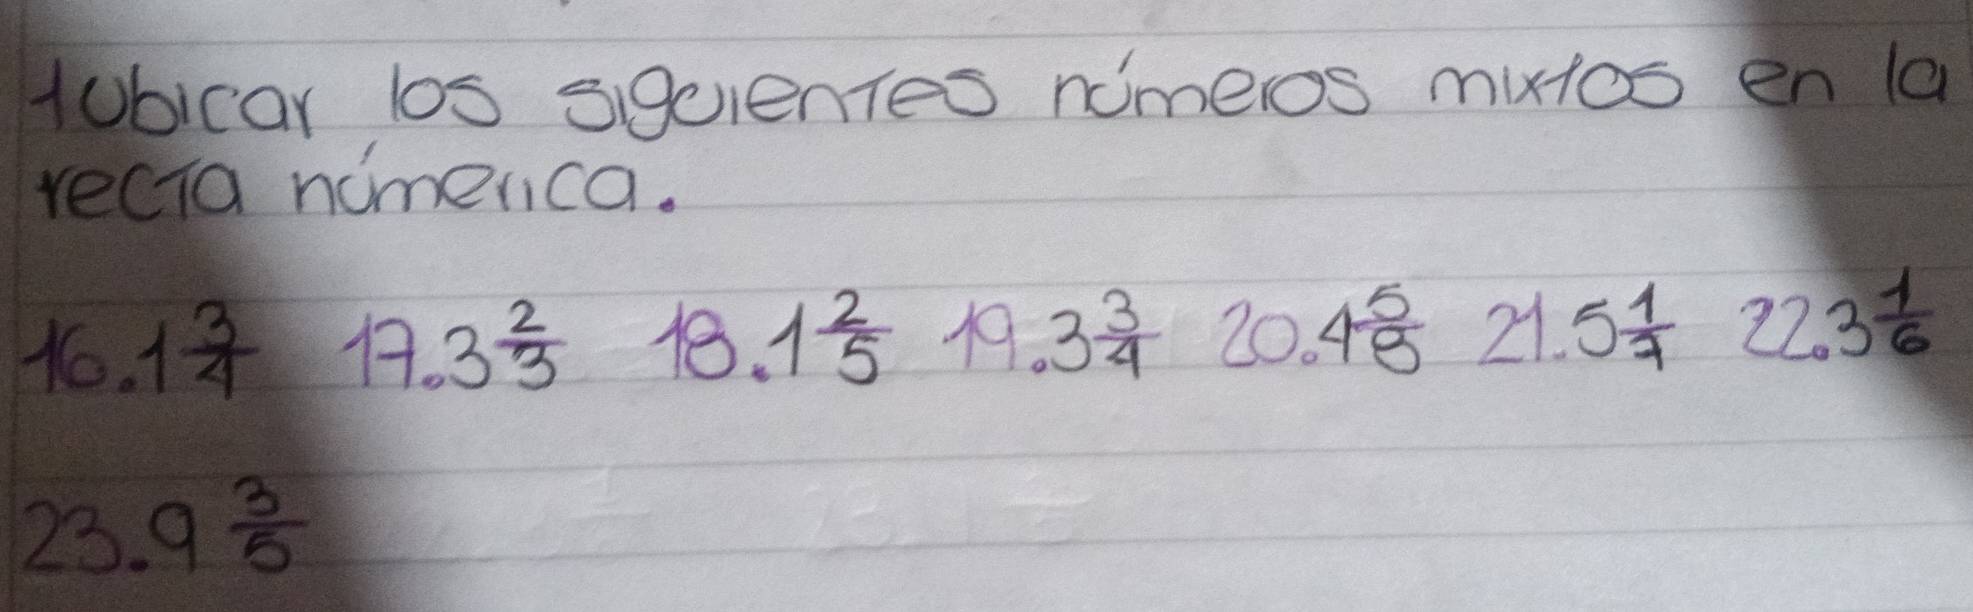 1 Ubicar los siguientes números mixtos en la
recta númerica.
16. 1 3/4 17. 3 2/3 18. 1 2/5 19. 3 3/4 20. 4 5/8 21. 5 1/7 22. 3 1/6
23. 9 3/5